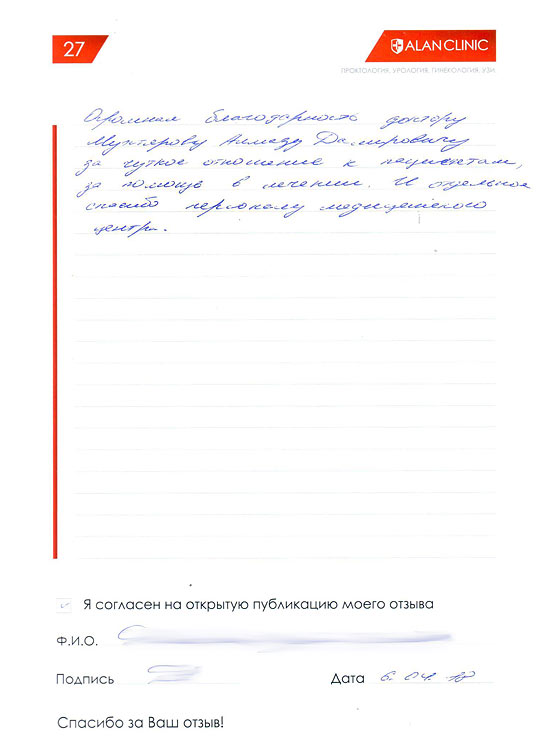 27
ALANCLINIC
ПРОКТОЛОГИЯ, УРОЛОГИЯ, ГИНЕКОЛОГИЯ, УЗИ
Огромная благодарность доктору
Мухтарову Ахмеду Дамировичу
за чуткое отношение к пациентам,
за помощь в лечении. И отдельное
спасибо персоналу медицинского
центра.
Я согласен на открытую публикацию моего отзыва
Ф.И.О.
Подпись
Дата 6.04.18
Спасибо за Ваш отзыв!